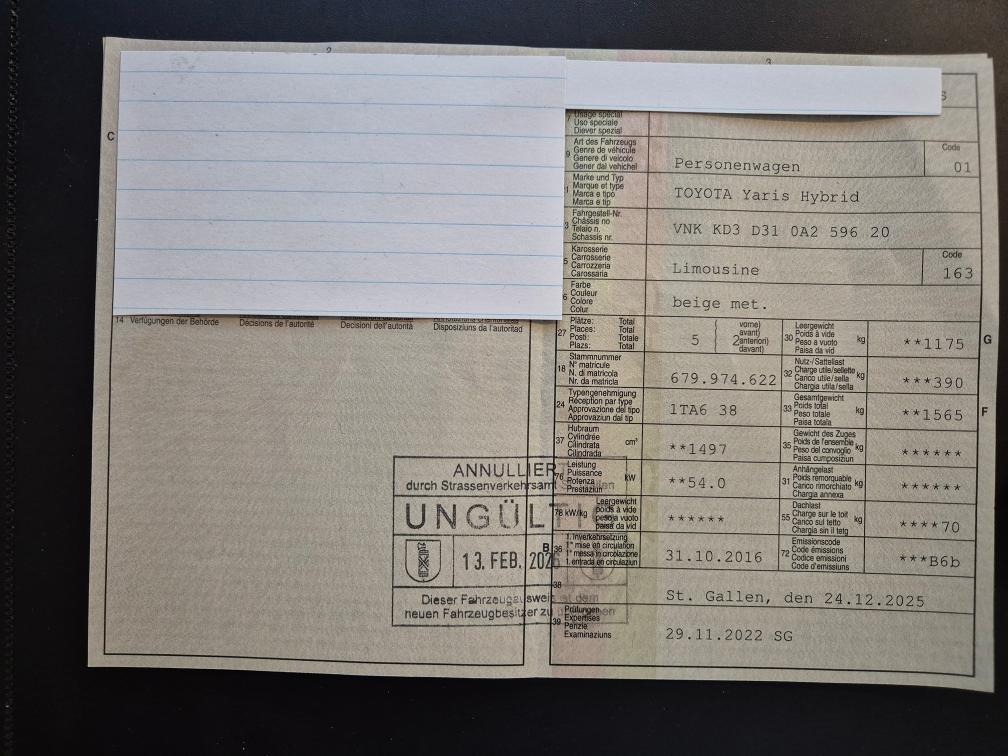 2
C
14 Verfügungen der Behörde
Décisions de l'autorité
Decisioni dell'autorità
Disposiziuns da l'autoritad
ANNULLIERT
durch Strassenverkehrsamt
UNGÜLTIG
13. FEB. 2026
Dieser Fahrzeugausweis ist dem
neuen Fahrzeugbesitzer zu
3
S
Usage spécial
Uso speciale
Diever spezial
Art des Fahrzeugs
Genre de véhicule
Genere di veicolo
Gener dal vehichel
Personenwagen
Code
01
Marke und Typ
Marque et type
Marca e tipo
Marca e tip
TOYOTA Yaris Hybrid
Fahrgestell-Nr.
Châssis no
Telaio n.
Schassis nr.
VNK KD3 D31 0A2 596 20
Karosserie
Carrosserie
Carrozzeria
Carossaria
Limousine
Code
163
Farbe
Couleur
Colore
Colur
beige met.
27
Plätze: Total
Places: Total
Posti: Totale
Plazs: Total
5
2
vorne)
avant)
anteriori)
davant)
30
Leergewicht
Poids à vide
Peso a vuoto
Paisa da vid
kg
**1175
G
18
Stammnummer
N° matricule
N. di matricola
Nr. da matricla
679.974.622
32
Nutz-/Sattellast
Charge utile/sellette
Carico utile/sella
Chargia utila/sella
kg
***390
24
Typengenehmigung
Réception par type
Approvazione del tipo
Approvaziun dal tip
1TA6 38
33
Gesamtgewicht
Poids total
Peso totale
Paisa totala
kg
**1565
F
37
Hubraum
Cylindrée
Cilindrata
Cilindrada
cm³
**1497
35
Gewicht des Zuges
Poids de l'ensemble
Peso del convoglio
Paisa cumposiziun
kg
******
76
Leistung
Puissance
Potenza
Prestaziun
kW
**54.0
31
Anhängelast
Poids remorquable
Carico rimorchiato
Chargia annexa
kg
******
78 kW/kg
Leergewicht
poids à vide
peso a vuoto
paisa da vid
******
55
Dachlast
Charge sur le toit
Carico sul tetto
Chargia sin il tetg
kg
****70
B
36
1. Inverkehrsetzung
1re mise en circulation
1a messa in circolazione
1. entrada en circulaziun
31.10.2016
72
Emissionscode
Code émissions
Codice emissioni
Code d'emissiuns
***B6b
38
St. Gallen, den 24.12.2025
39
Prüfungen
Expertises
Perizie
Examinaziuns
29.11.2022 SG